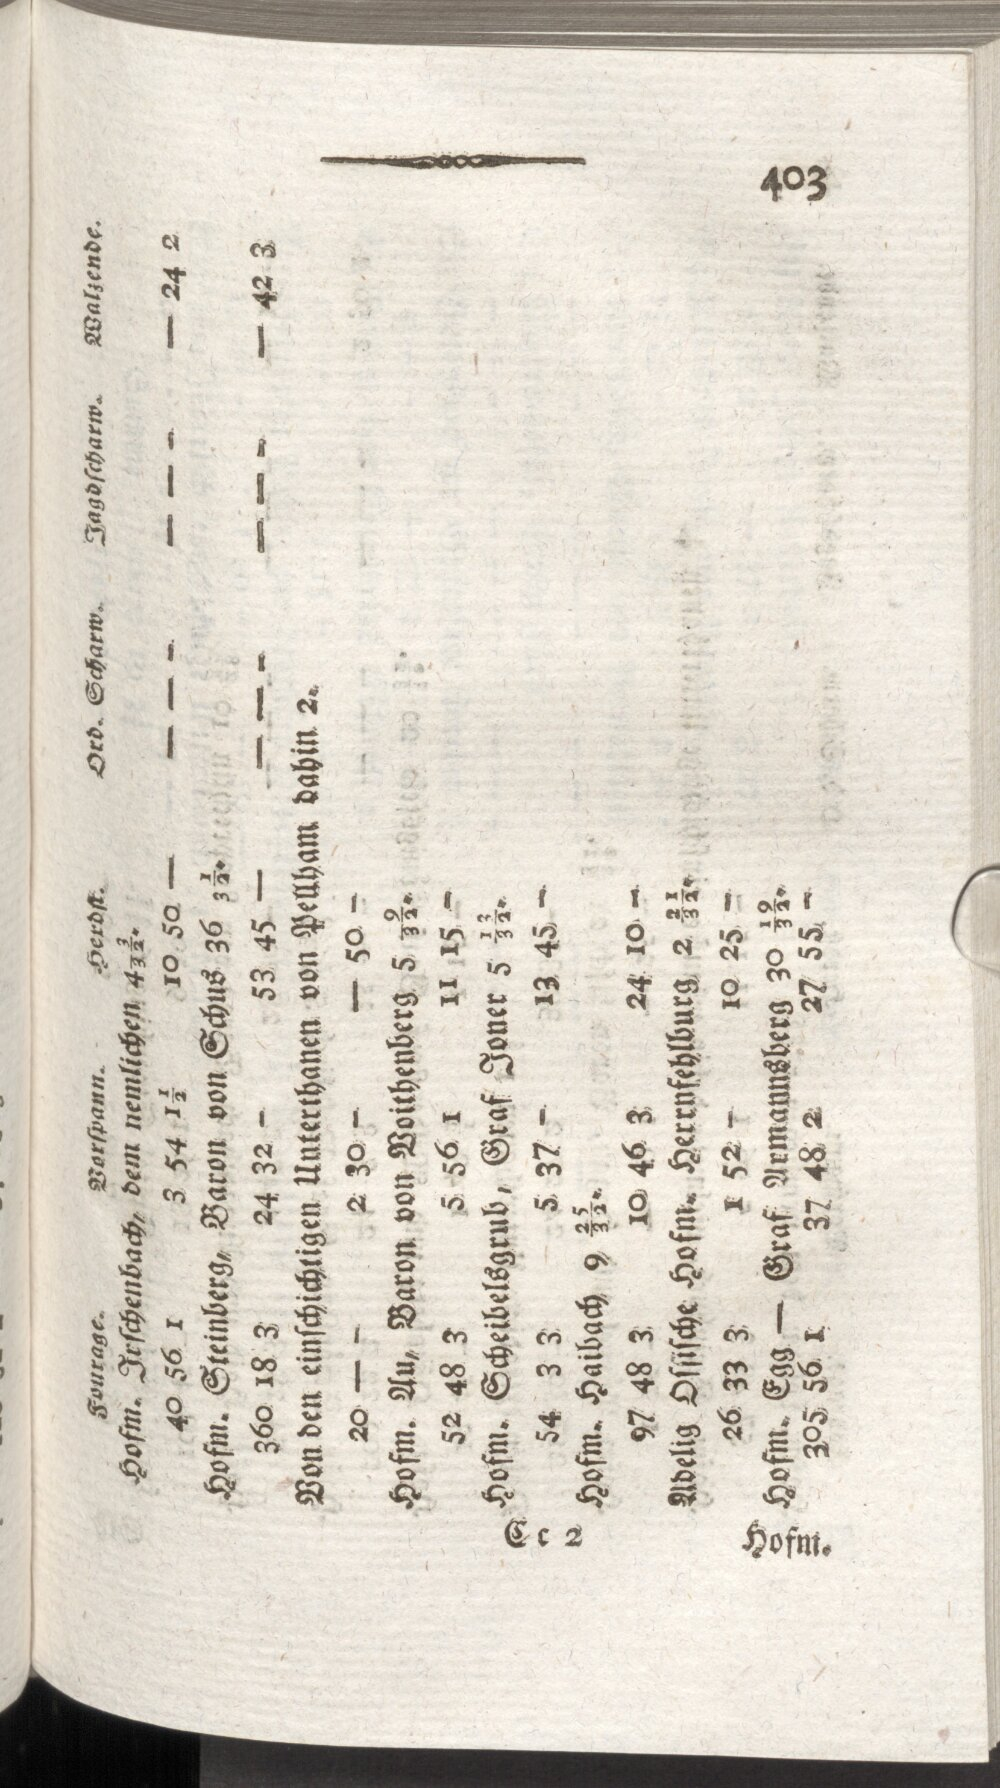 403
Fourage. Vorspann. Herbst. Ord. Scharw. Jagdscharw. Walzende.
Hofm. Irschenbach, dem nemlichen 4 3/32.
40 56 1 3 54 1 1/2 10 50 — — — — — — — — 24 2
Hofm. Steinberg, Baron von Schus 36 1/32.
360 18 3 24 32 — 53 45 — — — — — — — — 42 3
Von den einschichtigen Unterthanen von Pellham dahin 2.
20 — — 2 30 — — 50 —
Hofm. Au, Baron von Voithenberg 5 9/32.
52 48 3 5 56 1 11 15 —
Hofm. Scheibelsgrub, Graf Joner 5 13/32.
54 3 3 5 37 — 13 45 —
Hofm. Haibach 9 25/32.
97 48 3 10 46 3 24 10 —
Adelig Ossische Hofm. Herrnfehlburg 2 21/32.
26 33 3 1 52 — 10 25 —
Hofm. Egg — Graf Armannsberg 30 19/32.
305 56 1 37 48 2 27 55 —
Cc 2
Hofm.